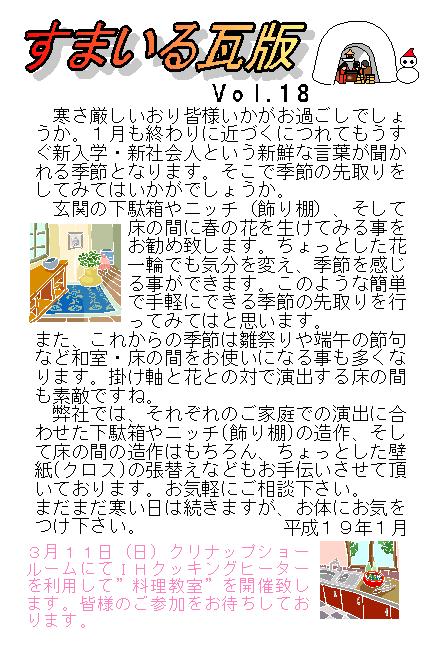 すまいる瓦版
Vol.18
寒さ厳しいおり皆様いかがお過ごしでしょ
うか。１月も終わりに近づくにつれてもうす
ぐ新入学・新社会人という新鮮な言葉が聞か
れる季節となります。そこで季節の先取りを
してみてはいかがでしょうか。
玄関の下駄箱やニッチ（飾り棚）、そして
床の間に春の花を生けてみる事を
お勧め致します。ちょっとした花
一輪でも気分を変え、季節を感じ
る事ができます。このような簡単
で手軽にできる季節の先取りを行
ってみてはと思います。
また、これからの季節は雛祭りや端午の節句
など和室・床の間をお使いになる事も多くな
ります。掛け軸と花との対で演出する床の間
も素敵ですね。
弊社では、それぞれのご家庭での演出に合
わせた下駄箱やニッチ(飾り棚)の造作、そし
て床の間の造作はもちろん、ちょっとした壁
紙(クロス)の張替えなどもお手伝いさせて頂
いております。お気軽にご相談下さい。
まだまだ寒い日は続きますが、お体にお気を
つけ下さい。　平成１９年１月
３月１１日（日）クリナップショー
ルームにてＩＨクッキングヒーター
を利用して”料理教室”を開催致し
ます。皆様のご参加をお待ちしてお
ります。